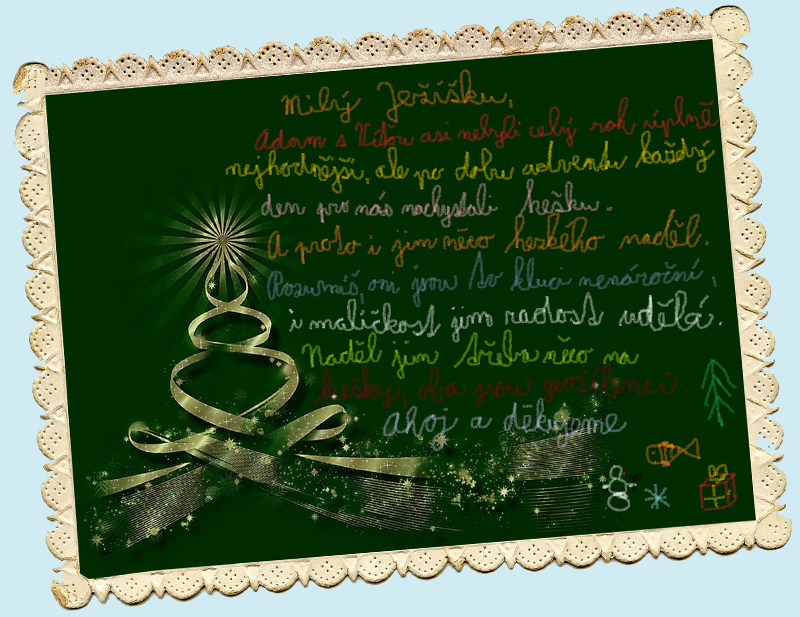 Milý Ježíšku,
Adam s Víťou asi nebyli celý rok úplně
nejhodnější, ale po dobu adventu každý
den pro nás nachystali kešku.
A proto i jim něco hezkého naděl.
Rozumíš, oni jsou to kluci nenároční,
i maličkost jim radost udělá.
Naděl jim třeba něco na
kešky, oba jsou geošílenci
Ahoj a děkujeme